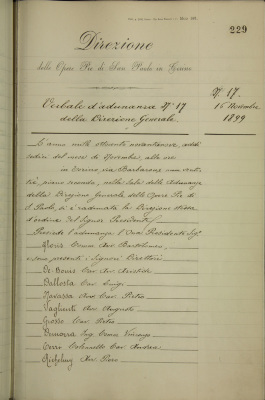 229
Direzione
delle Opere Pie di San Paolo in Torino
Verbale d'adunanza N° 17
della Direzione Generale.
N. 17.
16 Novembre
1899
L'anno mille ottocento novantanove, addì
sedici del mese di Novembre alle ore
in Torino, via Barbaroux
piano secondo, nella Sala delle Adunanze
della Direzione Generale delle Opere Pie di
S. Paolo, si è radunata la Direzione stessa
d'ordine del Signor Presidente.
Presiede l'adunanza il Presidente Sig.
Comm. Avv. Bartolomeo,
e sono presenti i Signori Direttori
Cav. Av.
Ballosta Cav. Luigi
Navassa Avv. Cav. Pietro
Paglietti Avv. Augusto
Grosso Cav. Pietro
Demorra Ing. Comm. Vincenzo
Cerri Colonnello Cav. Andrea
Av. Piero